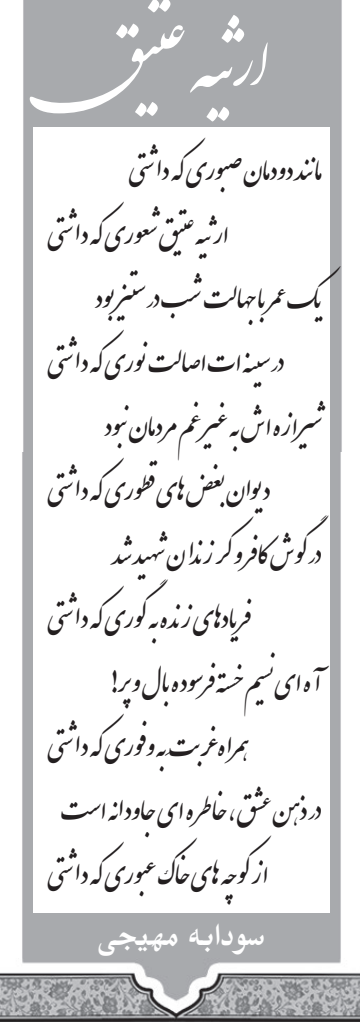 ارثیه عتیق
مانند دودمان صبوری که داشتی
ارثیه عتیق شعوری که داشتی
یک عمر با جهالت شب در ستیز بود
در سینه ات اصالت نوری که داشتی
شیرازه اش به غیر غم مردمان نبود
دیوان بغض های قطوری که داشتی
در گوش کافر و کر زندان شهید شد
فریادهای زنده به گوری که داشتی
آه ای نسیم خسته فرسوده بال و پر!
همراه غربت به وفوری که داشتی
در ذهن عشق، خاطره ای جاودانه است
از کوچه های خاک عبوری که داشتی
سودابه مهیجی